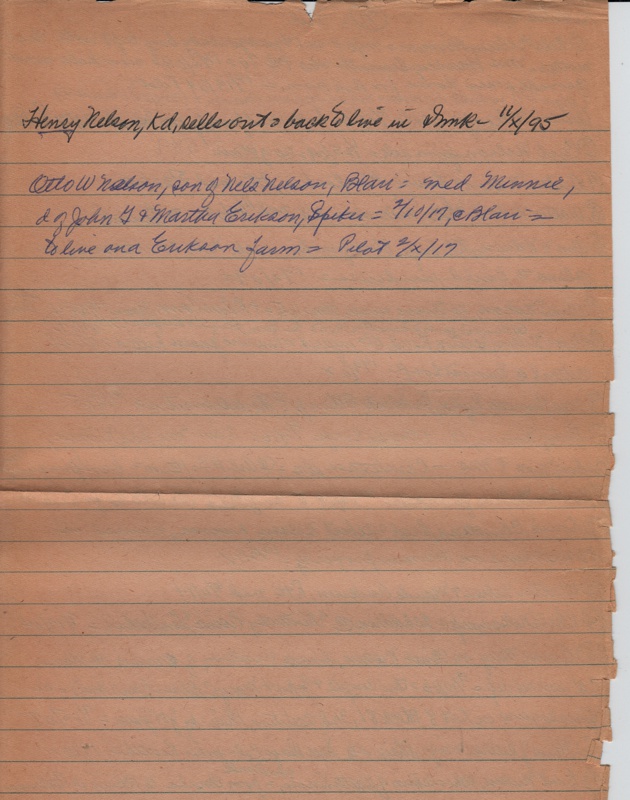 Henry Nelson, Kd, sells out = back to live in Dmk - 11/x/95
Otto W Nelson, son of Nels Nelson, Blair = med Minnie,
d of John G & Martha Erikson, Spiker = 2/10/17, @ Blair =
to live on a Erikson farm = Pilot 2/x/17